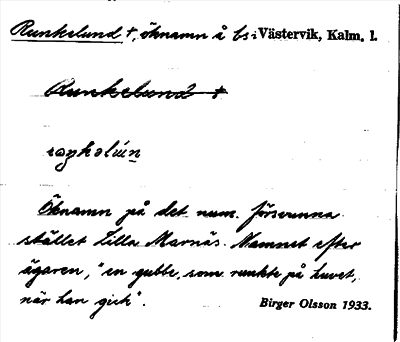 Runkelund †, öknamn å bs i Västervik, Kalm. l.
Runkelund †
Öknamn på det num. försvunna
stället Lilla Marnäs. Namnet efter
ägaren, "en gubbe, som runkte på huvet,
när han gick".
Birger Olsson 1933.